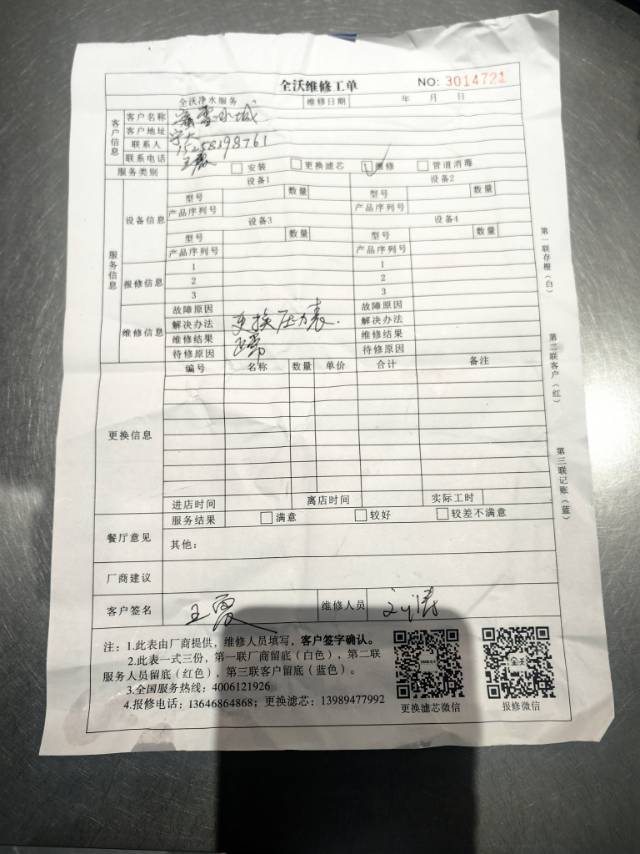 全沃维修工单
NO: 3014721
全沃净水服务 维修日期 年 月 日
客户信息
客户名称 蜜雪冰城
客户地址
联系人
联系电话
王霞
服务类别 安装 更换滤芯 维修 管道消毒
服务信息
设备信息
设备1 设备2
型号 数量 型号 数量
产品序列号 产品序列号
设备3 设备4
型号 数量 型号 数量
产品序列号 产品序列号
报修信息
1 1
2 2
3 3
维修信息
故障原因 故障原因
解决办法 更换压力表. 解决办法
维修结果 正常 维修结果
待修原因 待修原因
更换信息
编号 名称 数量 单价 合计 备注
进店时间 离店时间 实际工时
餐厅意见
服务结果 满意 较好 较差不满意
其他:
厂商建议
客户签名 王霞 维修人员 刘涛
注: 1.此表由厂商提供, 维修人员填写, 客户签字确认。
2.此表一式三份, 第一联厂商留底(白色), 第二联
服务人员留底(红色), 第三联客户留底(蓝色)。
3.全国服务热线: 4006121926
4.报修电话: 13646864868; 更换滤芯: 13989477992
更换滤芯微信
报修微信
第一联存根(白)
第二联客户(红)
第三联记账(蓝)